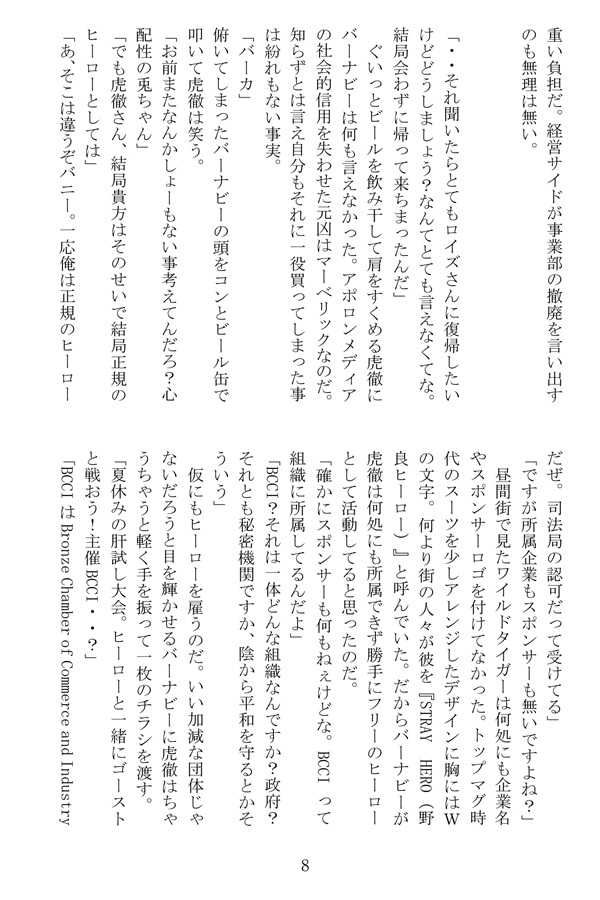 重い負担だ。経営サイドが事業部の撤廃を言い出す
のも無理は無い。
「・・それ聞いたらとてもロイズさんに復帰したい
けどどうしましょう？なんてとても言えなくてな。
結局会わずに帰って来ちまったんだ」
ぐいっとビールを飲み干して肩をすくめる虎徹に
バーナビーは何も言えなかった。アポロンメディア
の社会的信用を失わせた元凶はマーベリックなのだ。
知らずとは言え自分もそれに一役買ってしまった事
は紛れもない事実。
「バーカ」
俯いてしまったバーナビーの頭をコンとビール缶で
叩いて虎徹は笑う。
「お前またなんかしょーもない事考えてんだろ？心
配性の兎ちゃん」
「でも虎徹さん、結局貴方はそのせいで結局正規の
ヒーローとしては」
「あ、そこは違うぞバニー。一応俺は正規のヒーロー
だぜ。司法局の認可だって受けてる」
「ですが所属企業もスポンサーも無いですよね？」
昼間街で見たワイルドタイガーは何処にも企業名
やスポンサーロゴを付けてなかった。トップマグ時
代のスーツを少しアレンジしたデザインに胸にはＷ
の文字。何より街の人々が彼を『STRAY HERO（野
良ヒーロー）』と呼んでいた。だからバーナビーが
虎徹は何処にも所属できず勝手にフリーのヒーロー
として活動してると思ったのだ。
「確かにスポンサーも何もねぇけどな。BCCI って
組織に所属してるんだよ」
「BCCI？それは一体どんな組織なんですか？政府？
それとも秘密機関ですか、陰から平和を守るとかそ
ういう」
仮にもヒーローを雇うのだ。いい加減な団体じゃ
ないだろうと目を輝かせるバーナビーに虎徹はちゃ
うちゃうと軽く手を振って一枚のチラシを渡す。
「夏休みの肝試し大会。ヒーローと一緒にゴースト
と戦おう！主催 BCCI・・？」
「BCCI は Bronze Chamber of Commerce and Industry
8